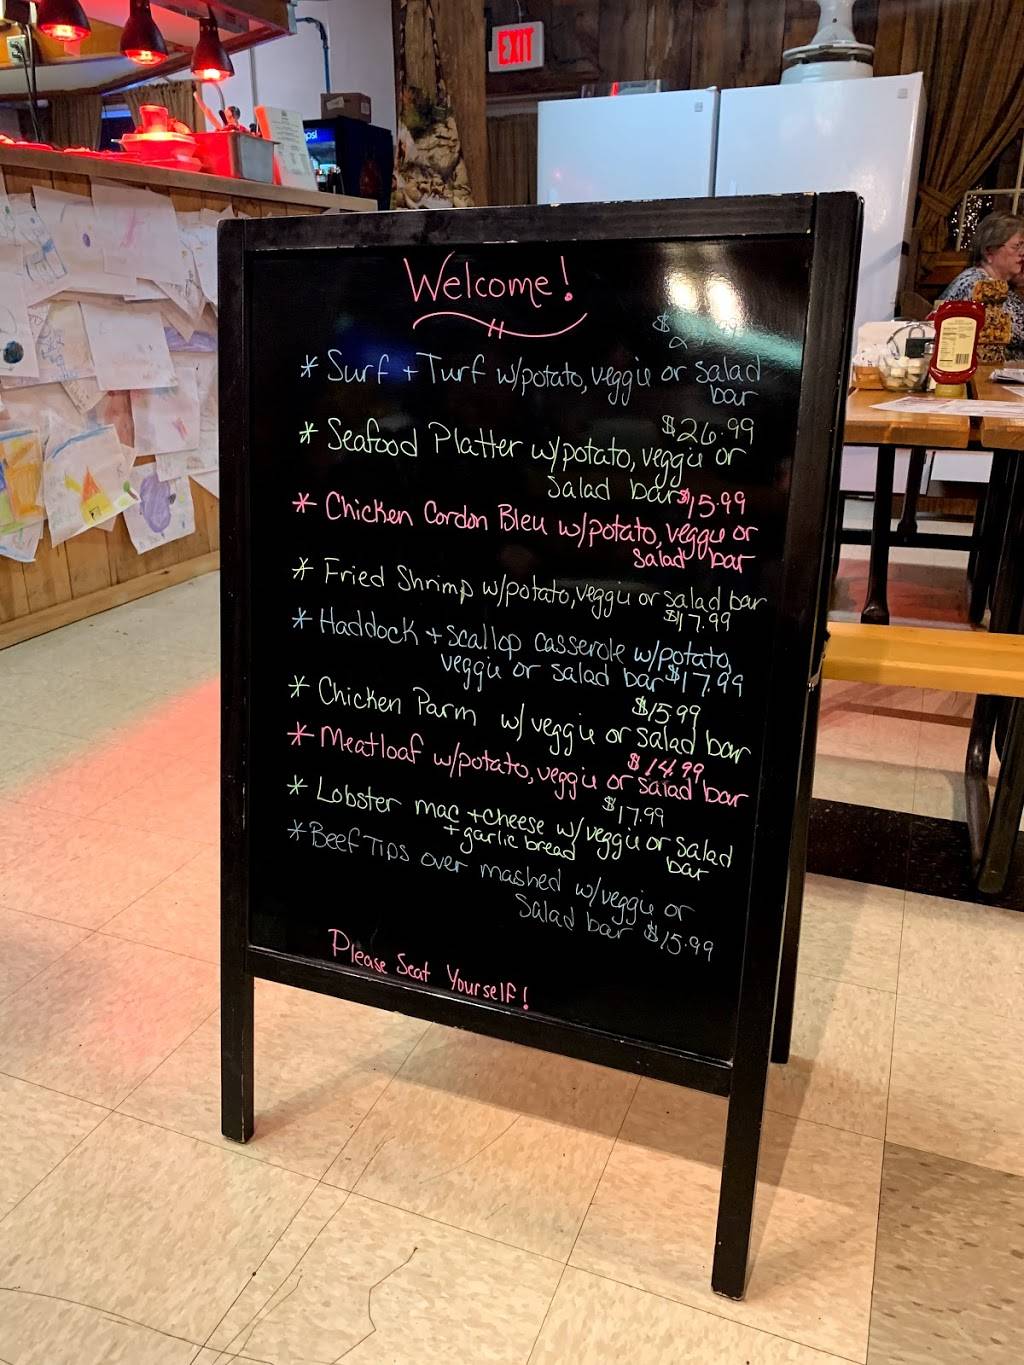 EXIT
Welcome!
* Surf + Turf w/potato, veggie or salad
bar
$26.99
* Seafood Platter w/potato, veggie or
salad bar
$15.99
* Chicken Cordon Bleu w/potato, veggie or
salad bar
* Fried Shrimp w/potato, veggie or salad bar
$17.99
* Haddock + scallop casserole w/potato,
veggie or salad bar $17.99
$15.99
* Chicken Parm w/ veggie or salad bar
$14.99
* Meatloaf w/potato, veggie or salad bar
$17.99
* Lobster mac + cheese w/ veggie or salad
+ garlic bread bar
* Beef Tips over mashed w/veggie or
salad bar $15.99
Please Seat Yourself!